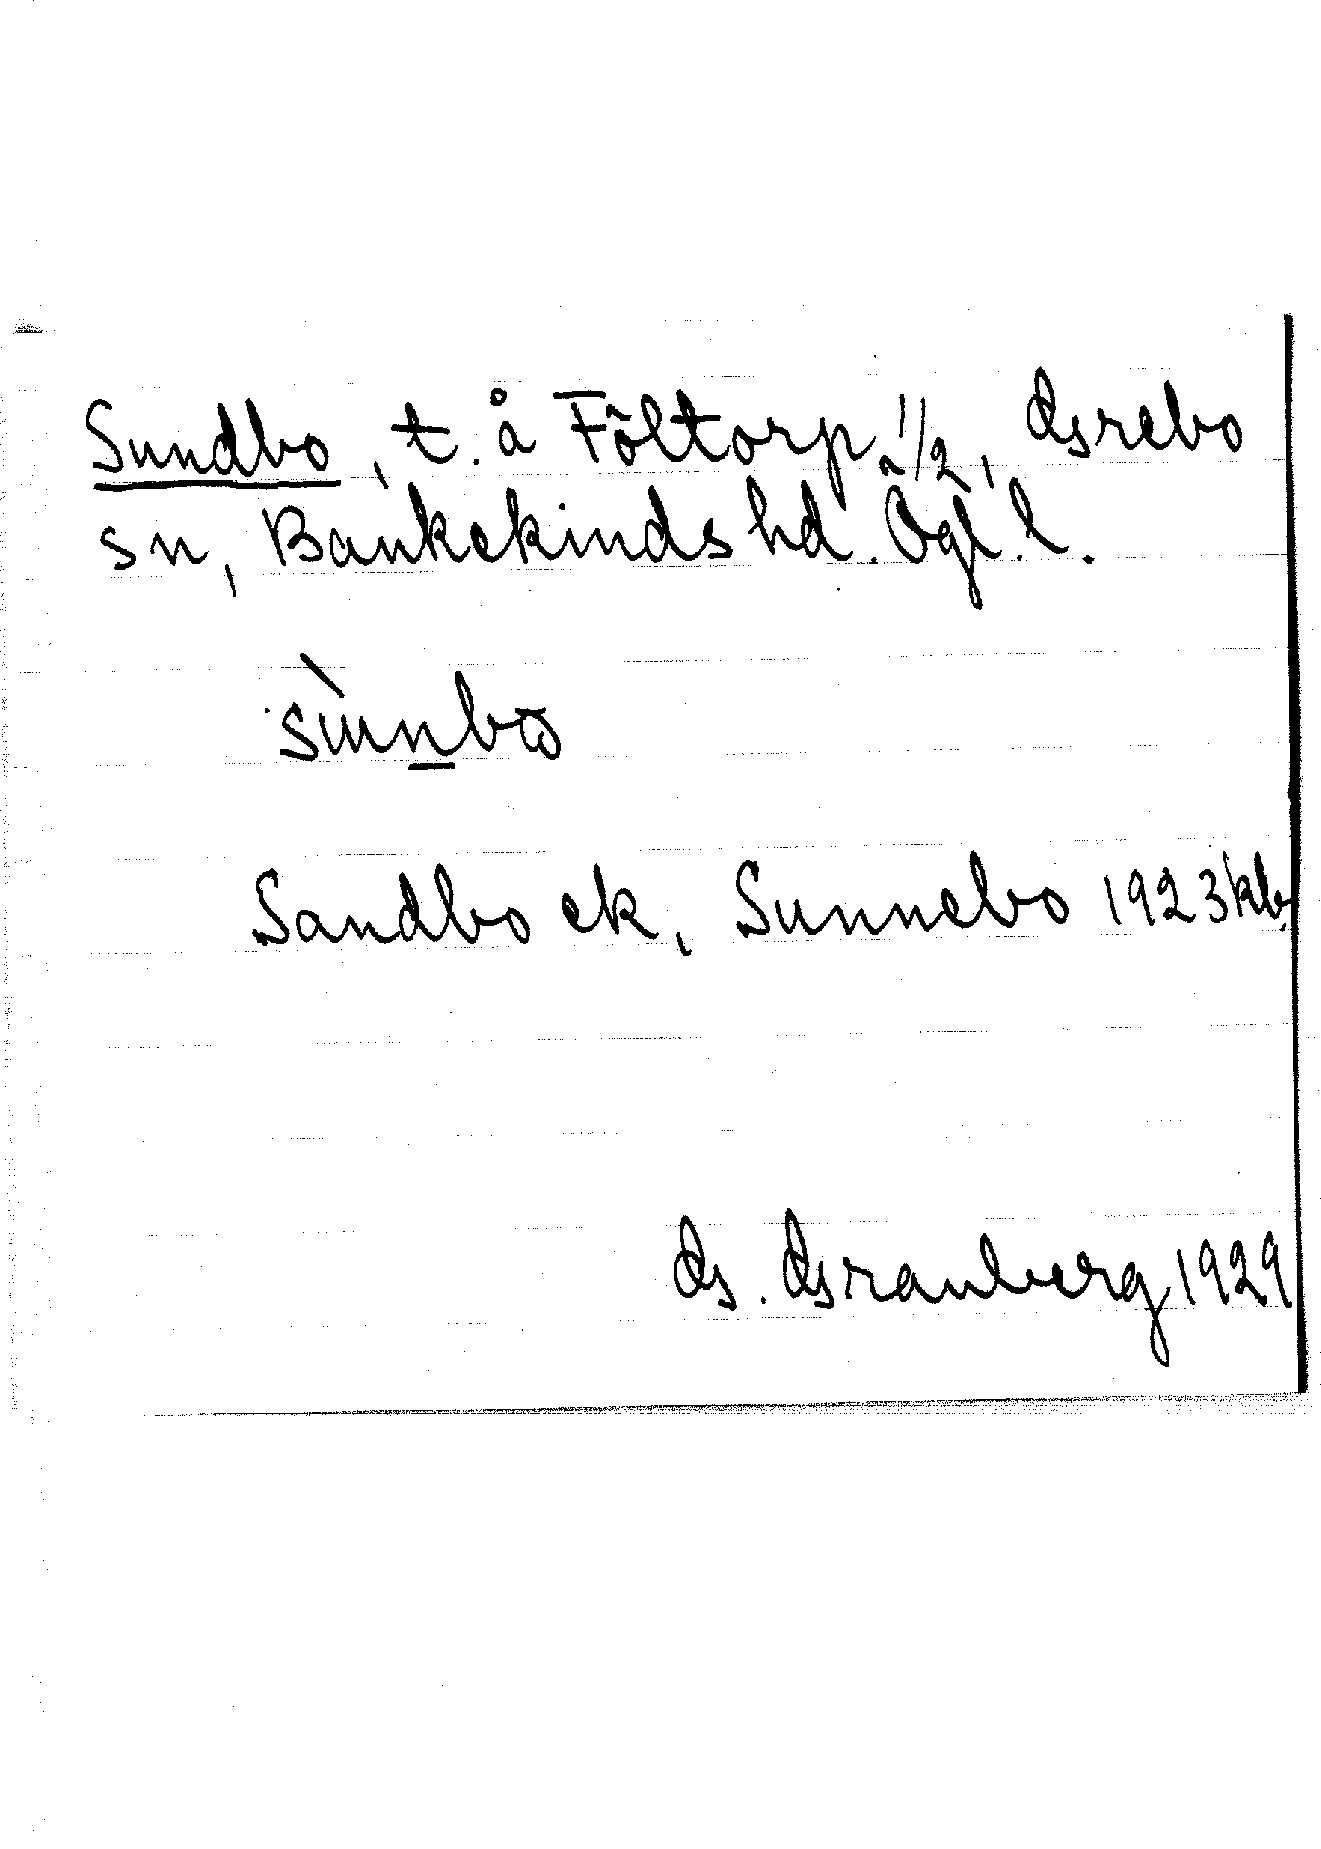 Sundbo, t. å Föltorp 1/2, Grebo
sn, Bankekinds hd. Ögl. l.
sùnbo
Sandbo ek, Sunnebo 1923 kb.
G. Granberg 1929